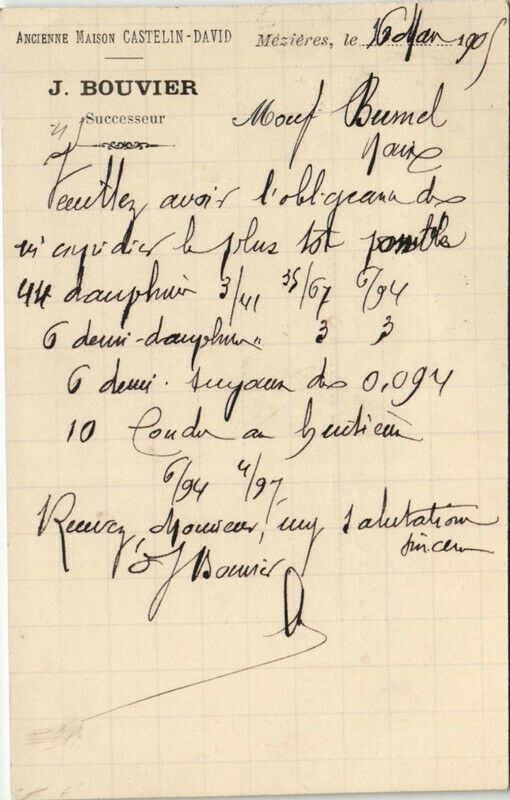 ANCIENNE MAISON CASTELIN-DAVID
Mézières, le 16 Mars 1905
J. BOUVIER
Successeur
Monsf
Veuillez avoir l'obligeance de
m'expédier le plus tôt possible
44 dauphins 3/41 35/67 6/94
6 demi-dauphins 3 3
6 demi-tuyaux de 0,094
10 Coudes au huitième
6/94 4/97
Recevez, Monsieur, mes salutations
sincères
J Bouvier